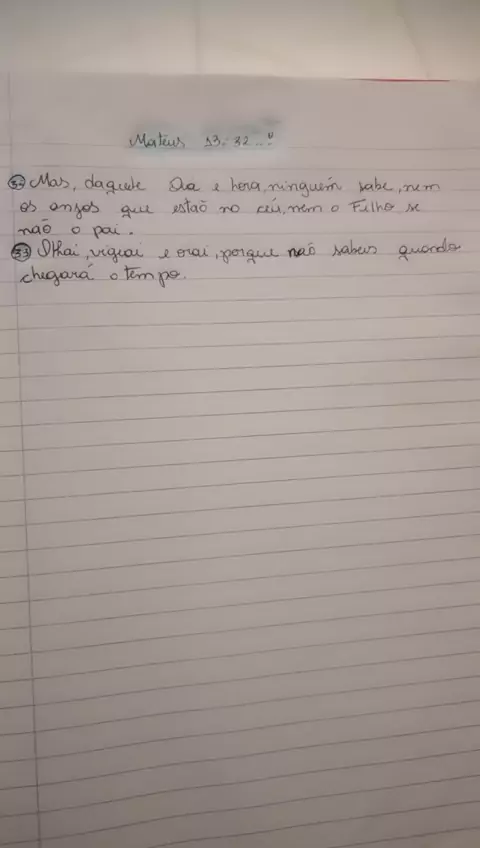 Mateus 13:32..."
32 Mas, daquele Dia e hora, ninguém sabe, nem
os anjos que estão no céu, nem o Filho se
não o pai.
33 Olhai, vigiai e orai, porque não sabeis quando
chegará o tempo.